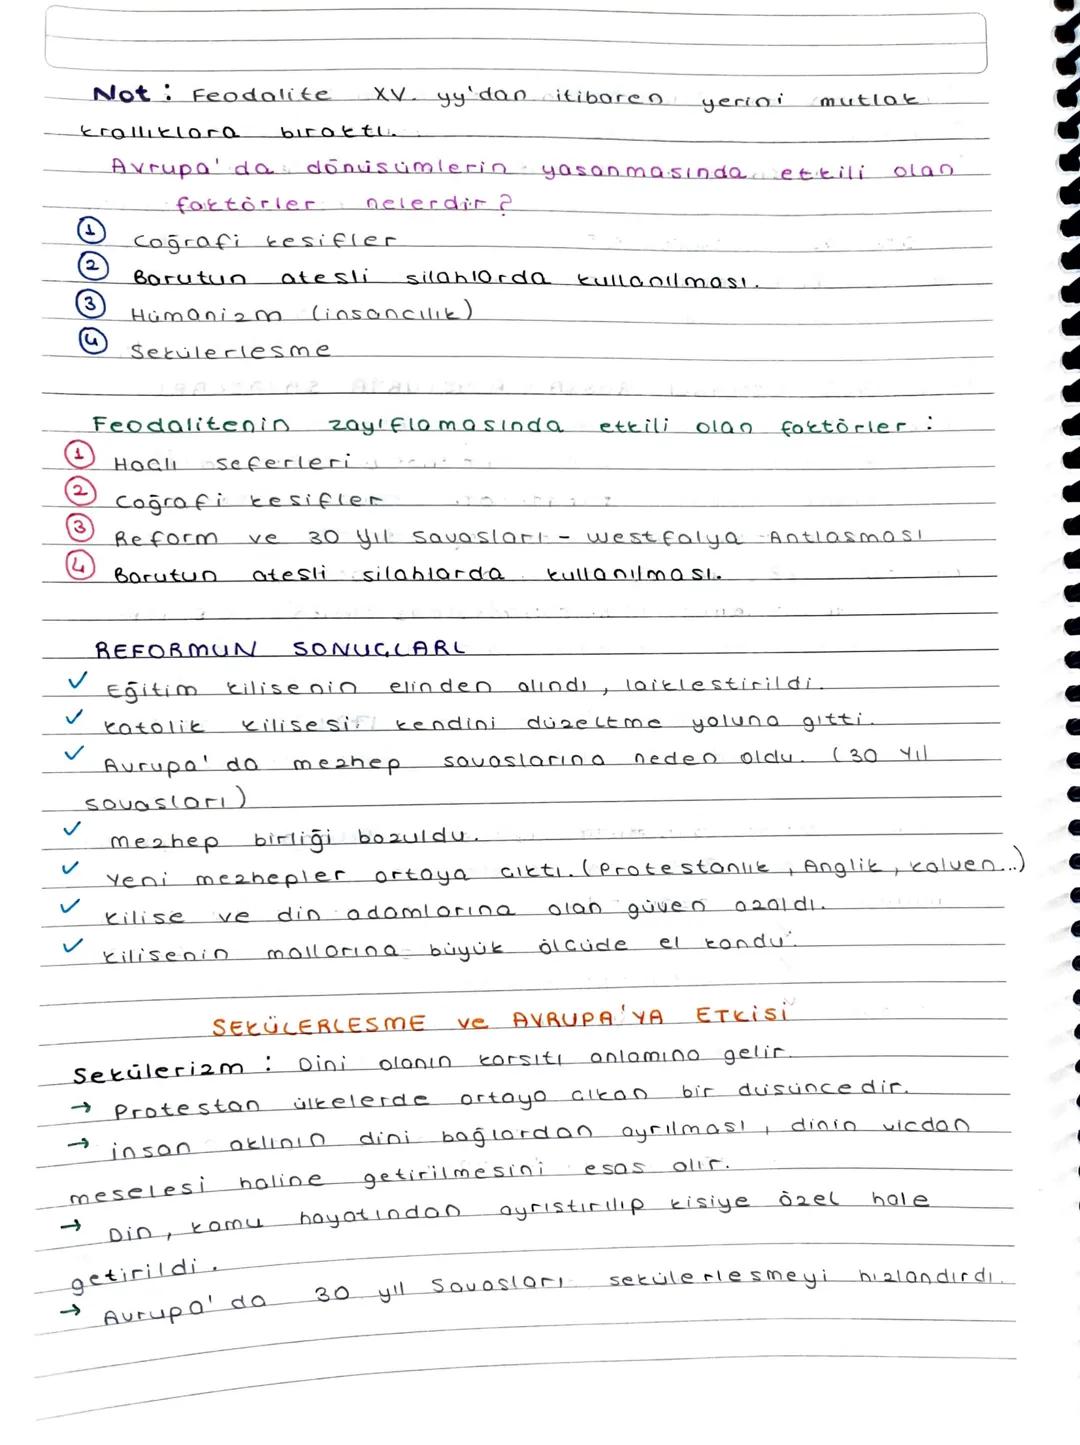 Not : Feodalite XV. yy'dan itibaren yerini mutlak
krallıklara bıraktı.
Avrupa'da dönüsümlerin yasanmasında etkili olan
faktörler nelerdir?
1 Coğrafi kesifler
2 Barutun atesli silahlarda kullanılması.
3 Hümanizm (insancılık)
4 Sekülerlesme
Feodalitenin zayıflamasında etkili olan faktörler :
1 Haclı seferleri
2 Coğrafi kesifler
3 Reform ve 30 Yıl Savasları - Westfalya Antlasması
4 Barutun atesli silahlarda kullanılması.
REFORMUN SONUCLARI
✓ Eğitim kilisenin elinden alındı, laiklestirildi.
✓ Katolik kilisesi kendini düzeltme yoluna gitti.
✓ Avrupa'da mezhep savaslarına neden oldu. (30 Yıl
savasları)
✓ mezhep birliği bozuldu.
✓ Yeni mezhepler ortaya cıktı. (Protestanlık, Anglik, kalven...)
✓ Kilise ve din adamlarına olan güven azaldı.
✓ Kilisenin mallarına büyük ölcüde el kondu.
SEKÜLERLESME ve AVRUPA'YA ETKİSİ
Sekülerizm : Dini olanın karsıtı anlamına gelir.
→ Protestan ülkelerde ortaya cıkan bir düsüncedir.
→ insan aklının dini bağlardan ayrılması, dinin vicdan
meselesi haline getirilmesini esas alır.
→ Din, kamu hayatından ayrıstırılıp kisiye özel hale
getirildi.
→ Avrupa'da 30 yıl Savasları sekülerlesmeyi hızlandırdı.